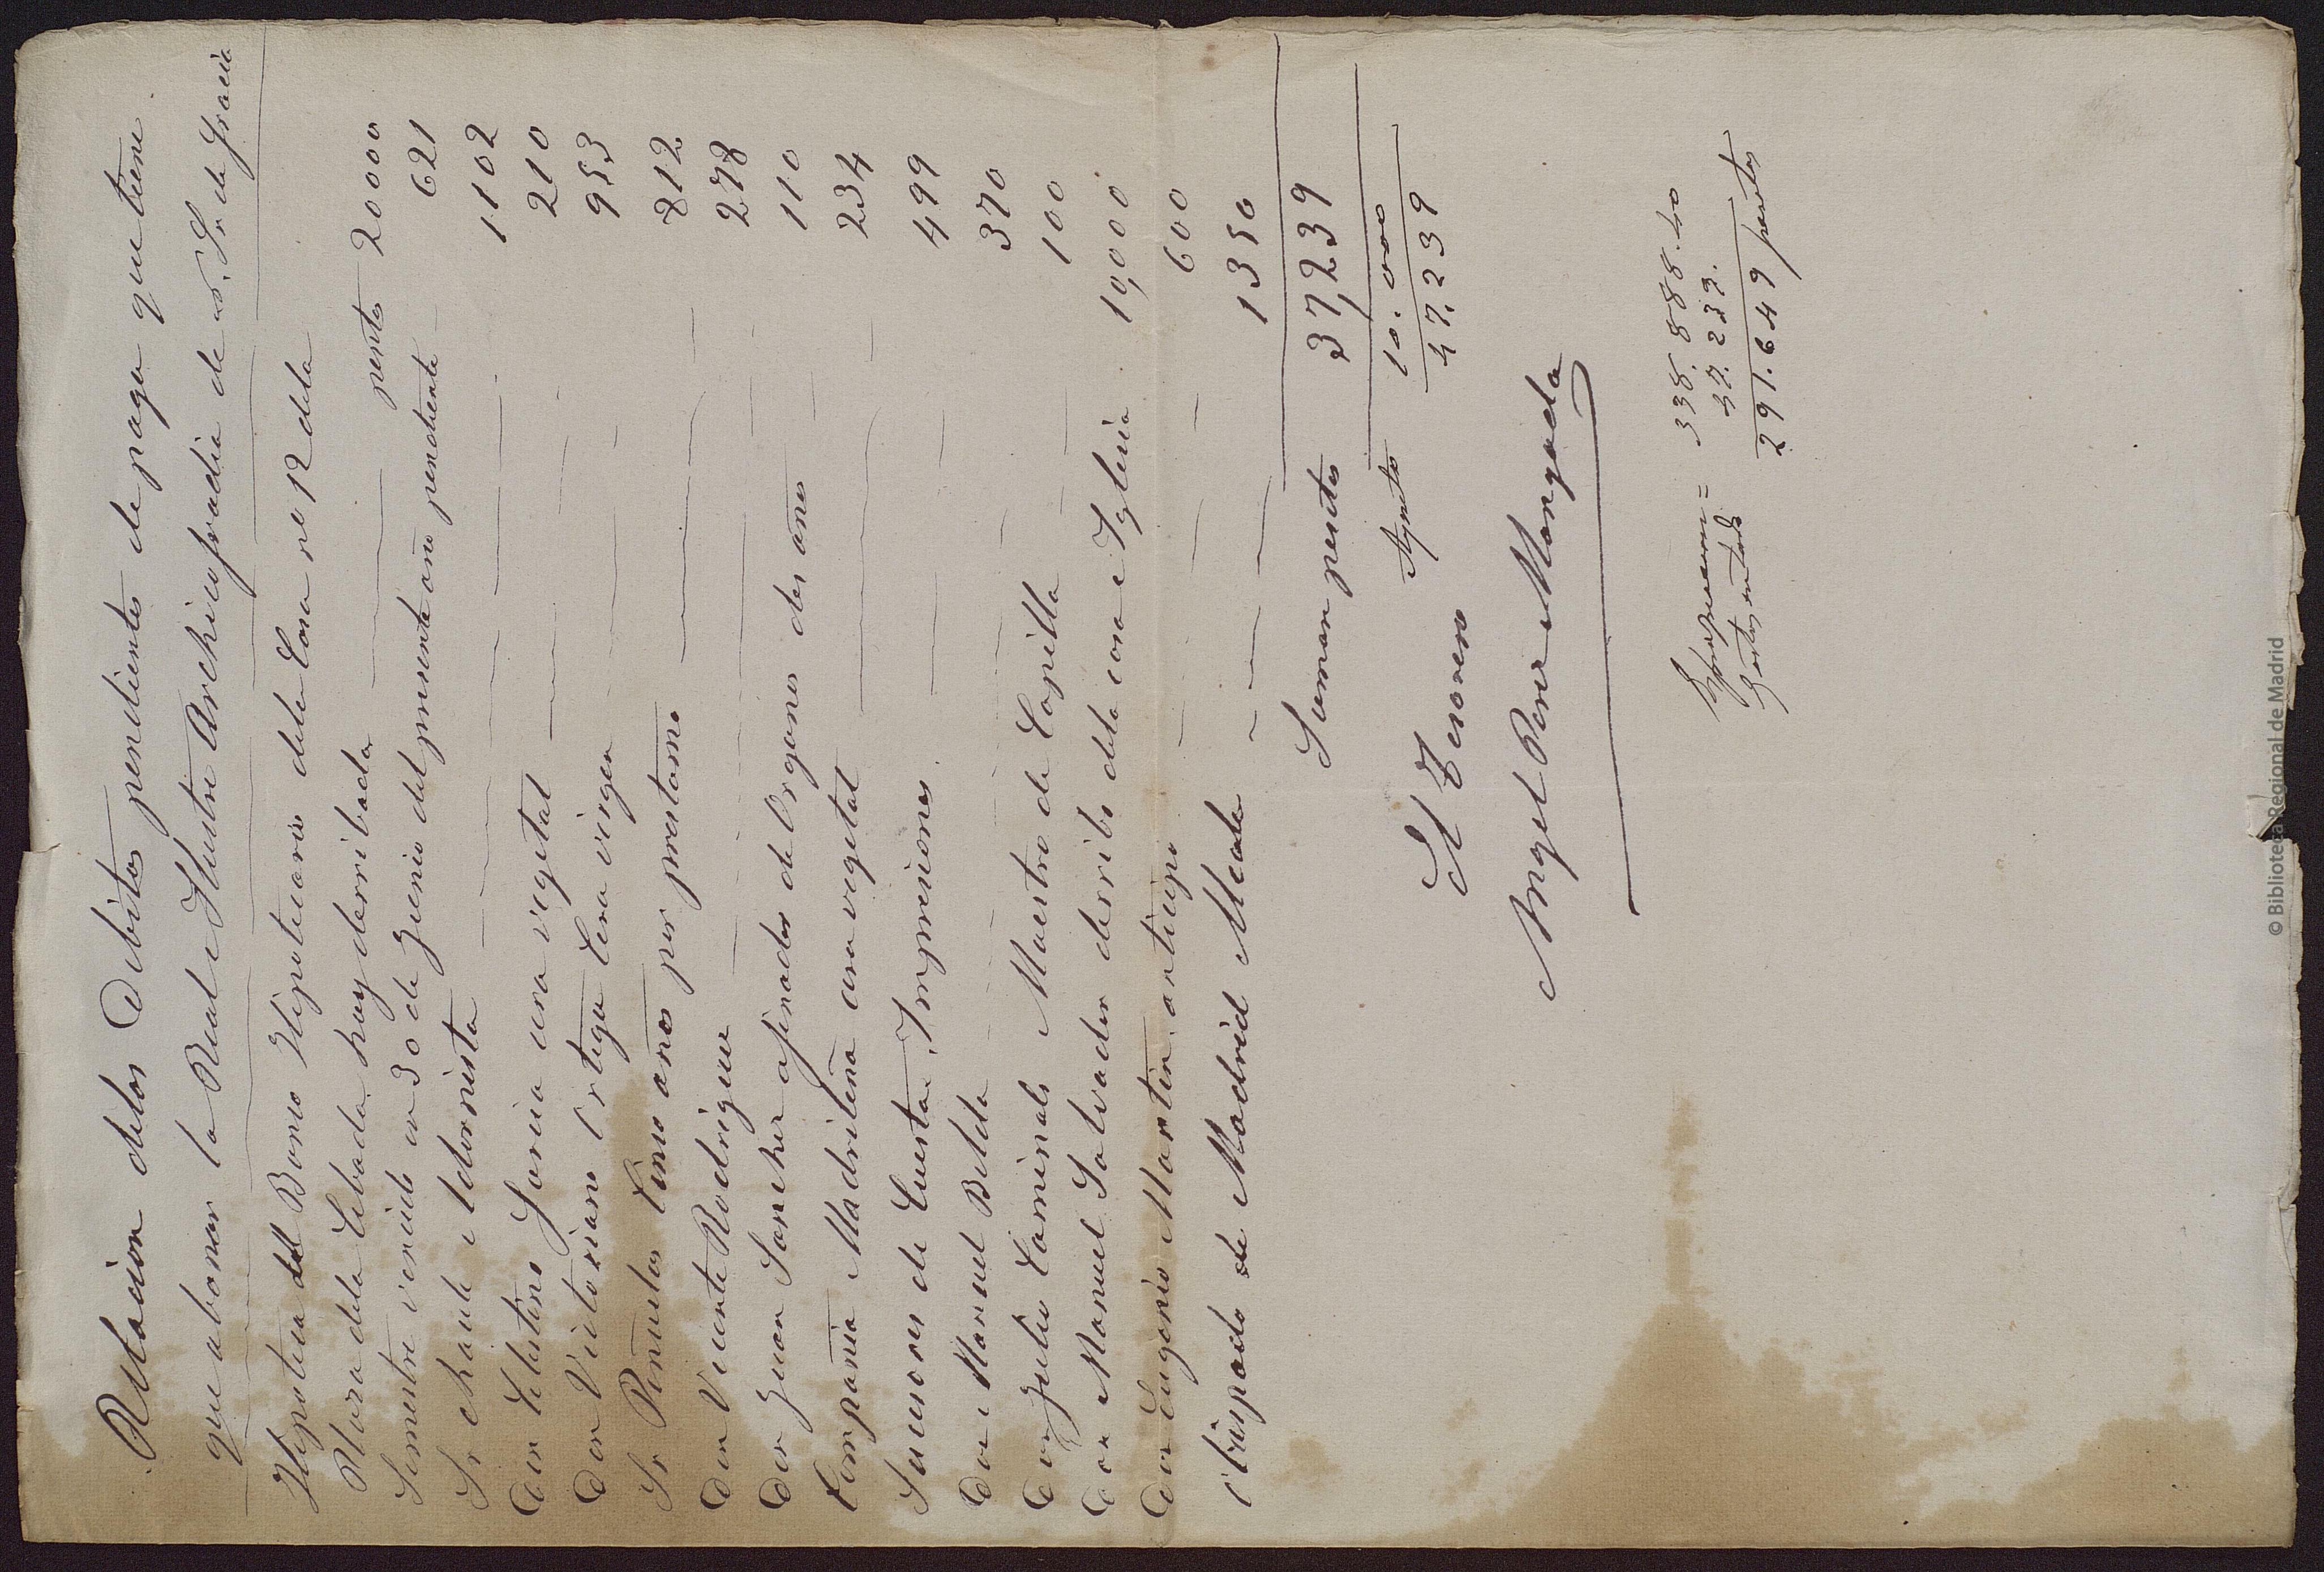 Relacion delos Debitos pendientes de pago que tiene
que abonar la Real e Ilustre Archicofradia de N. Sr de Gracia
Hipoteca del Banco Hipotecario dela Casa no 12 dela
Plaza dela Cebada hoy derribada pesetas 20000
Semestre vencido en 30 de Junio del presente año pendiente 621
Sr Adornista 1102
Don Celestino Garcia cera vegetal 210
Don Victoriano Ortega Cera virgen 953
Sr Penuelas Cinco años por prestamo 812
Don Vicente Rodriguez 278
Don Juan Sanchez afinador de Organos dos años 110
Compañia Madrileña cera vegetal 234
Sucesores de Cuesta. Impresiones 499
Don Manuel Belda 370
Don Julio Caminals Maestro de Capilla 100
Don Manuel Salvador derribo dela casa e Iglesia 10,000
Don Eugenio Martin anticipo 600
Obispado de Madrid Alcala 1350
Suman pesetas 37,239
10.000
47.239
El Tesorero
Angel Perez Mangada
= 338.888.40
47.239.
291.649 pesetas
© Biblioteca Regional de Madrid